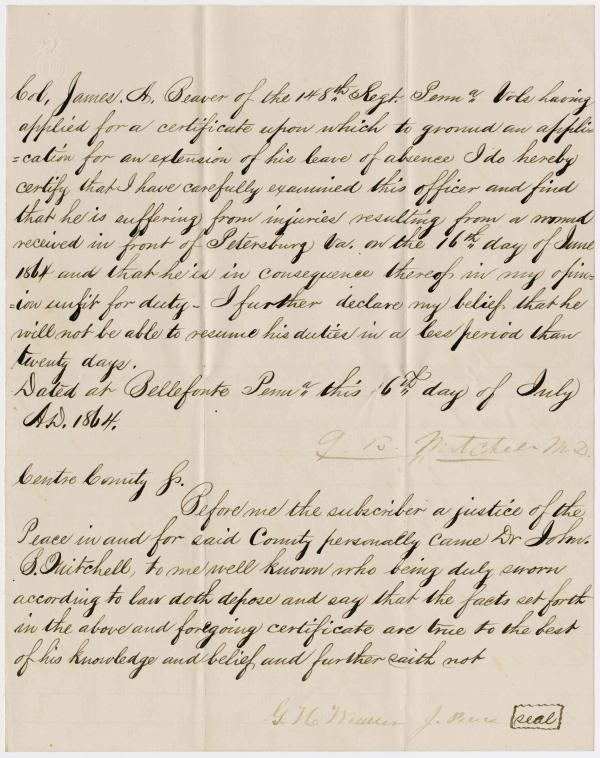 Col, James. A, Beaver of the 148th Regt. Penna. Vols having
applied for a certificate upon which to ground an appli-
=cation for an extension of his leave of absence I do hereby
certify that I have carefully examined this officer and find
that he is suffering from injuries resulting from a wound
received in front of Petersburg Va. on the 16th day of June
1864 and that he is in consequence thereof in my opin-
=ion unfit for duty - I further declare my belief that he
will not be able to resume his duties in a less period than
twenty days.
Dated at Bellefonte Penna. this 6th day of July
A.D. 1864.
J B. Mitchell M.D.
Centre County Ss.
Before me the subscriber a justice of the
Peace in and for said County personally came Dr John.
B. Mitchell, to me well known who being duly sworn
according to law doth depose and say that the facts set forth
in the above and foregoing certificate are true to the best
of his knowledge and belief and further saith not
G H J. Peace seal